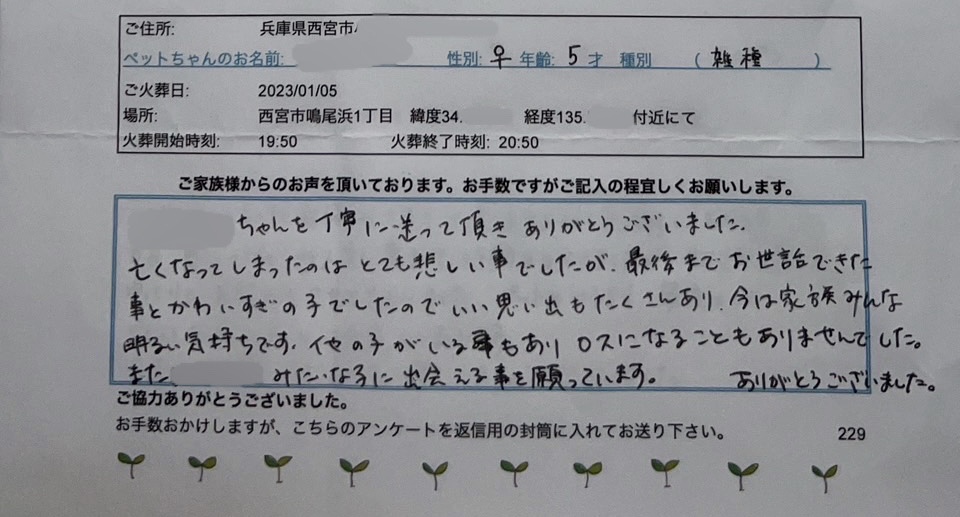 ご住所: 兵庫県西宮市
ペットちゃんのお名前: 性別: ♀ 年齢: 5 才 種別 (雑種)
ご火葬日: 2023/01/05
場所: 西宮市鳴尾浜1丁目 緯度34. 経度135. 付近にて
火葬開始時刻: 19:50 火葬終了時刻: 20:50
ご家族様からのお声を頂いております。お手数ですがご記入の程宜しくお願いします。
ちゃんを丁寧に送って頂きありがとうございました。
亡くなってしまったのはとても悲しい事でしたが、最後までお世話できた
事とかわいすぎの子でしたのでいい思い出もたくさんあり、今は家族みんな
明るい気持ちです。他の子がいる事もありロスになることもありませんでした。
また、 みたいな子に出会える事を願っています。 ありがとうございました。
ご協力ありがとうございました。
お手数おかけしますが、こちらのアンケートを返信用の封筒に入れてお送り下さい。 229